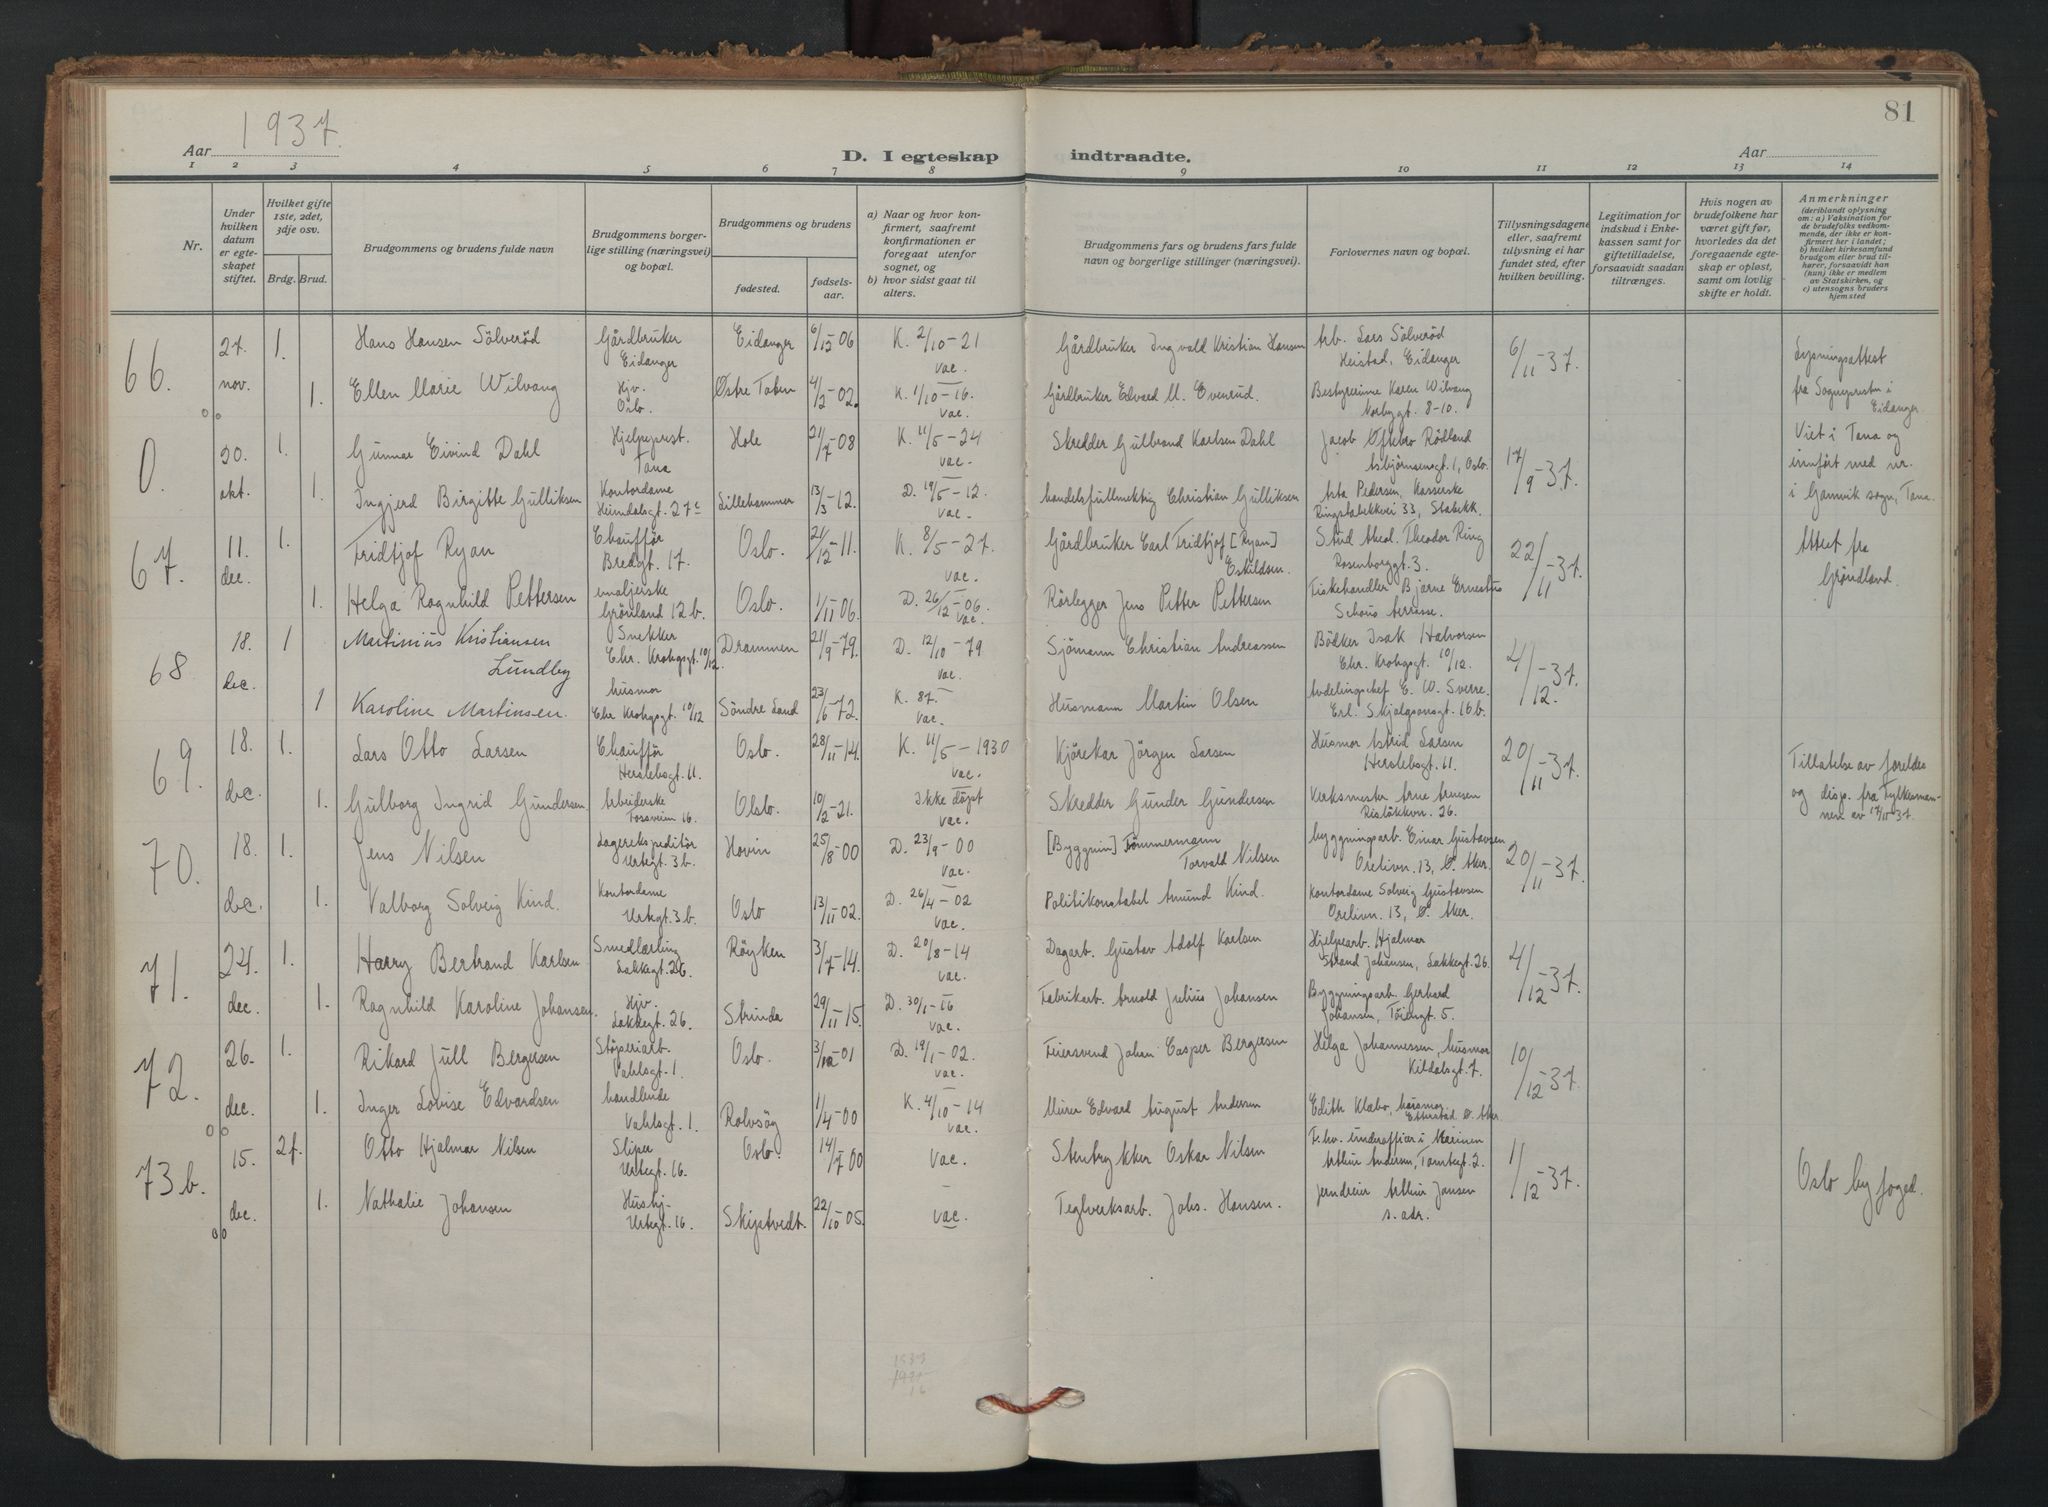 1937.
81
Aar
D. I egteskap
indtraadte.
Aar
1 2 3 4 5 6 7 8 9 10 11 12 13 14
Nr.
Under hvilken datum er egteskapet stiftet.
Hvilket gifte 1ste, 2det, 3dje osv.
Brdg. Brud.
Brudgommens og brudens fulde navn
Brudgommens borgerlige stilling (næringsvei) og bopæl.
Brudgommens og brudens
fødested.
fødselsaar.
a) Naar og hvor konfirmert, saafremt konfirmationen er foregaat utenfor sognet, og
b) hvor sidst gaat til alters.
Brudgommens fars og brudens fars fulde navn og borgerlige stillinger (næringsvei).
Forlovernes navn og bopæl.
Tillysningsdagene eller, saafremt tillysning ei har fundet sted, efter hvilken bevilling.
Legitimation for indskud i Enkekassen samt for giftetilladelse, forsaavidt saadan tiltrænges.
Hvis nogen av brudefolkene har været gift før, hvorledes da det foregaaende egteskap er opløst, samt om lovlig skifte er holdt.
Anmerkninger
(deriblandt oplysning om: a) Vaksination for de brudefolks vedkommende, der ikke er konfirmert her i landet; b) hvilket kirkesamfund brudgom eller brud tilhører, forsaavidt han (hun) ikke er medlem av Statskirken, og c) utensogns bruders hjemsted
66. 27. nov. 1. Hans Hansen Sölveröd Gårdbruker Eidanger Eidanger 6/12-06 K. 2/10-21 vac. Gårdbruker Ingvald Kristian Hansen Arb. Lars Sölveröd Heistad, Eidanger 6/11-37. Lysningsattest fra Sogneprestn i Eidanger.
1. Ellen Marie Wilvang Hjv. Oslo. Østre Toten 4/2-02. K. 1/10-16. vac. Gårdbruker Edvard M. Evenrud. Bestyrerinne Karen Wilvang Norbygt. 8-10.
0. 20. okt. 1. Gunnar Eivind Dahl Hjelpeprest. Tana Hole 21/7-08 K. 11/5-24 vac. Skredder Gulbrand Karlsen Dahl Jacob Oftebro Rödland Asbjörnsensgt. 1, Oslo. 17/9-37. Viet i Tana og innfört med nr. i Gamvik sogn, Tana.
1. Ingjerd Birgitte Gulliksen Kontordame Heimdalsgt. 27c Lillehammer 13/3-12. D. 19/5-12. vac. Handelsfullmektig Christian Gulliksen Asta Pedersen, Kasserske Ringstabekkvei 33, Stabekk.
67. 11. dec. 1. Fridtjof Ryan Chauffør Bredgt. 17. Oslo. 21/12-11. K. 8/5-27. vac. Gårdbruker Carl Fridtjof [Ryan] Eskildsen. Stud theol. Theodor Ring Rosenborggt. 3. 22/11-37. Attest fra Grøndland.
1. Helga Ragnhild Pettersen emaljeiske Grönland 12 b. Oslo. 1/11 06. D. 26/12-06. vac. Rörlegger Jens Petter Pettersen Fiskehandler Bjarne Ernestus Schous terrasse.
68 18. dec. 1 Martinius Kristiansen Lundby Snekker Chr. Krohgsgt. 10/12. Drammen 21/9-79. D. 12/10-79 vac. Sjömann Christian Andreassen Bödker Isak Halvorsen Chr. Krohgsgt. 10/12. 4/12-37.
1 Karoline Martinsen. husmor Chr Krohgsgt. 10/12 Söndre Land 23/6-72. K. 87. vac. Husmann Martin Olsen Avdelingschef E. W. Sverre. Erl. Skjalgsonsgt. 16 b.
69. 18. dec. 1. Lars Otto Larsen Chauffør Herslebsgt. 11. Oslo. 28/11-14. K. 11/5-1930 vac. Kjörekar Jörgen Larsen Husmor Astrid Larsen Herslebsgt. 11. 20/11-37. Tillatelse av foreldre og disp. fra Fylkesmannen av 17/11 37.
1. Gulborg Ingrid Gundersen Arbeiderske Fossveien 16. Oslo. 10/2-21. Ikke döpt vac. Skredder Gunder Gundersen Verksmester Arne Arnesen Rislökkvn. 26.
70. 18. dec. 1. Jens Nilsen Lagerekspeditör Urtegt. 3 b. Hovin 25/8-00 D. 23/9-00 vac. [Byggnin] Tömmermann Torvald Nilsen byggningsarb. Einar Gustavsen Orelivn. 13, Ø. Aker. 20/11-37.
1. Valborg Solveig Kind. Kontordame Urtegt. 3 b. Oslo 13/11 02. D. 26/4-02 vac. Politikonstabel Amund Kind. Kontordame Solveig Gustavsen Orelivn. 13, Ø. Aker.
71. 24. dec. 1. Harry Bertrand Karlsen Smedlærling Lakkegt. 26 Röyken 3/7-14. D. 20/8-14 vac. Dagarb. Gustav Adolf Karlsen Hjelpearb. Hjalmar Strand Johansen, Lakkegt. 26. 4/12-37.
1. Ragnhild Karoline Johansen. Hjv. Lakkegt. 26. Strinda 29/11-15. D. 30/1-16 vac. Fabrikarb. Arnold Julius Johansen Byggningsarb. Gerhard Johansen, Töiengt. 5.
72. 26. dec. 1. Rikard Jull Bergersen Stöperiarb. Vahlsgt. 1. Oslo. 3/12-01 D. 19/1-02. vac. Feiersvend Johan Casper Bergersen Helga Johannessen, husmor Kildalsgt. 7. 10/12-37.
1. Inger Lovise Edvardsen handlende Vahlsgt. 1. Rolvsöy 11/4-00 K. 4/10-14 vac. Murer Edvard August Andersen Edith Klabo, husmor Etterstad Ø. Aker.
73 b. 15. dec. 2f. Otto Hjalmar Nilsen Sliper Urtegt. 16. Oslo. 14/7 00 vac. Stentrykker Oskar Nilsen F. hv. underoffiser i Marinen Arthur Andersen, Tomtegt. 2. 1/12-37. Oslo byfoged.
1. Nathalie Johansen Hushj. Urtegt. 16. Skjetvedt. 22/10-05. vac. Teglverksarb. Johs. Hansen. jerndreier Arthur Jansen s. adr.